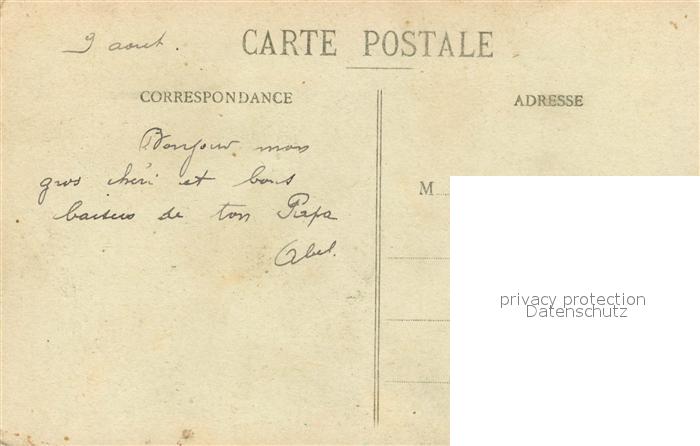 9 aout.
CARTE POSTALE
CORRESPONDANCE
Bonjour mon
gros chéri et bons
baisers de ton Papa
Abel.
ADRESSE
M
privacy protection
Datenschutz